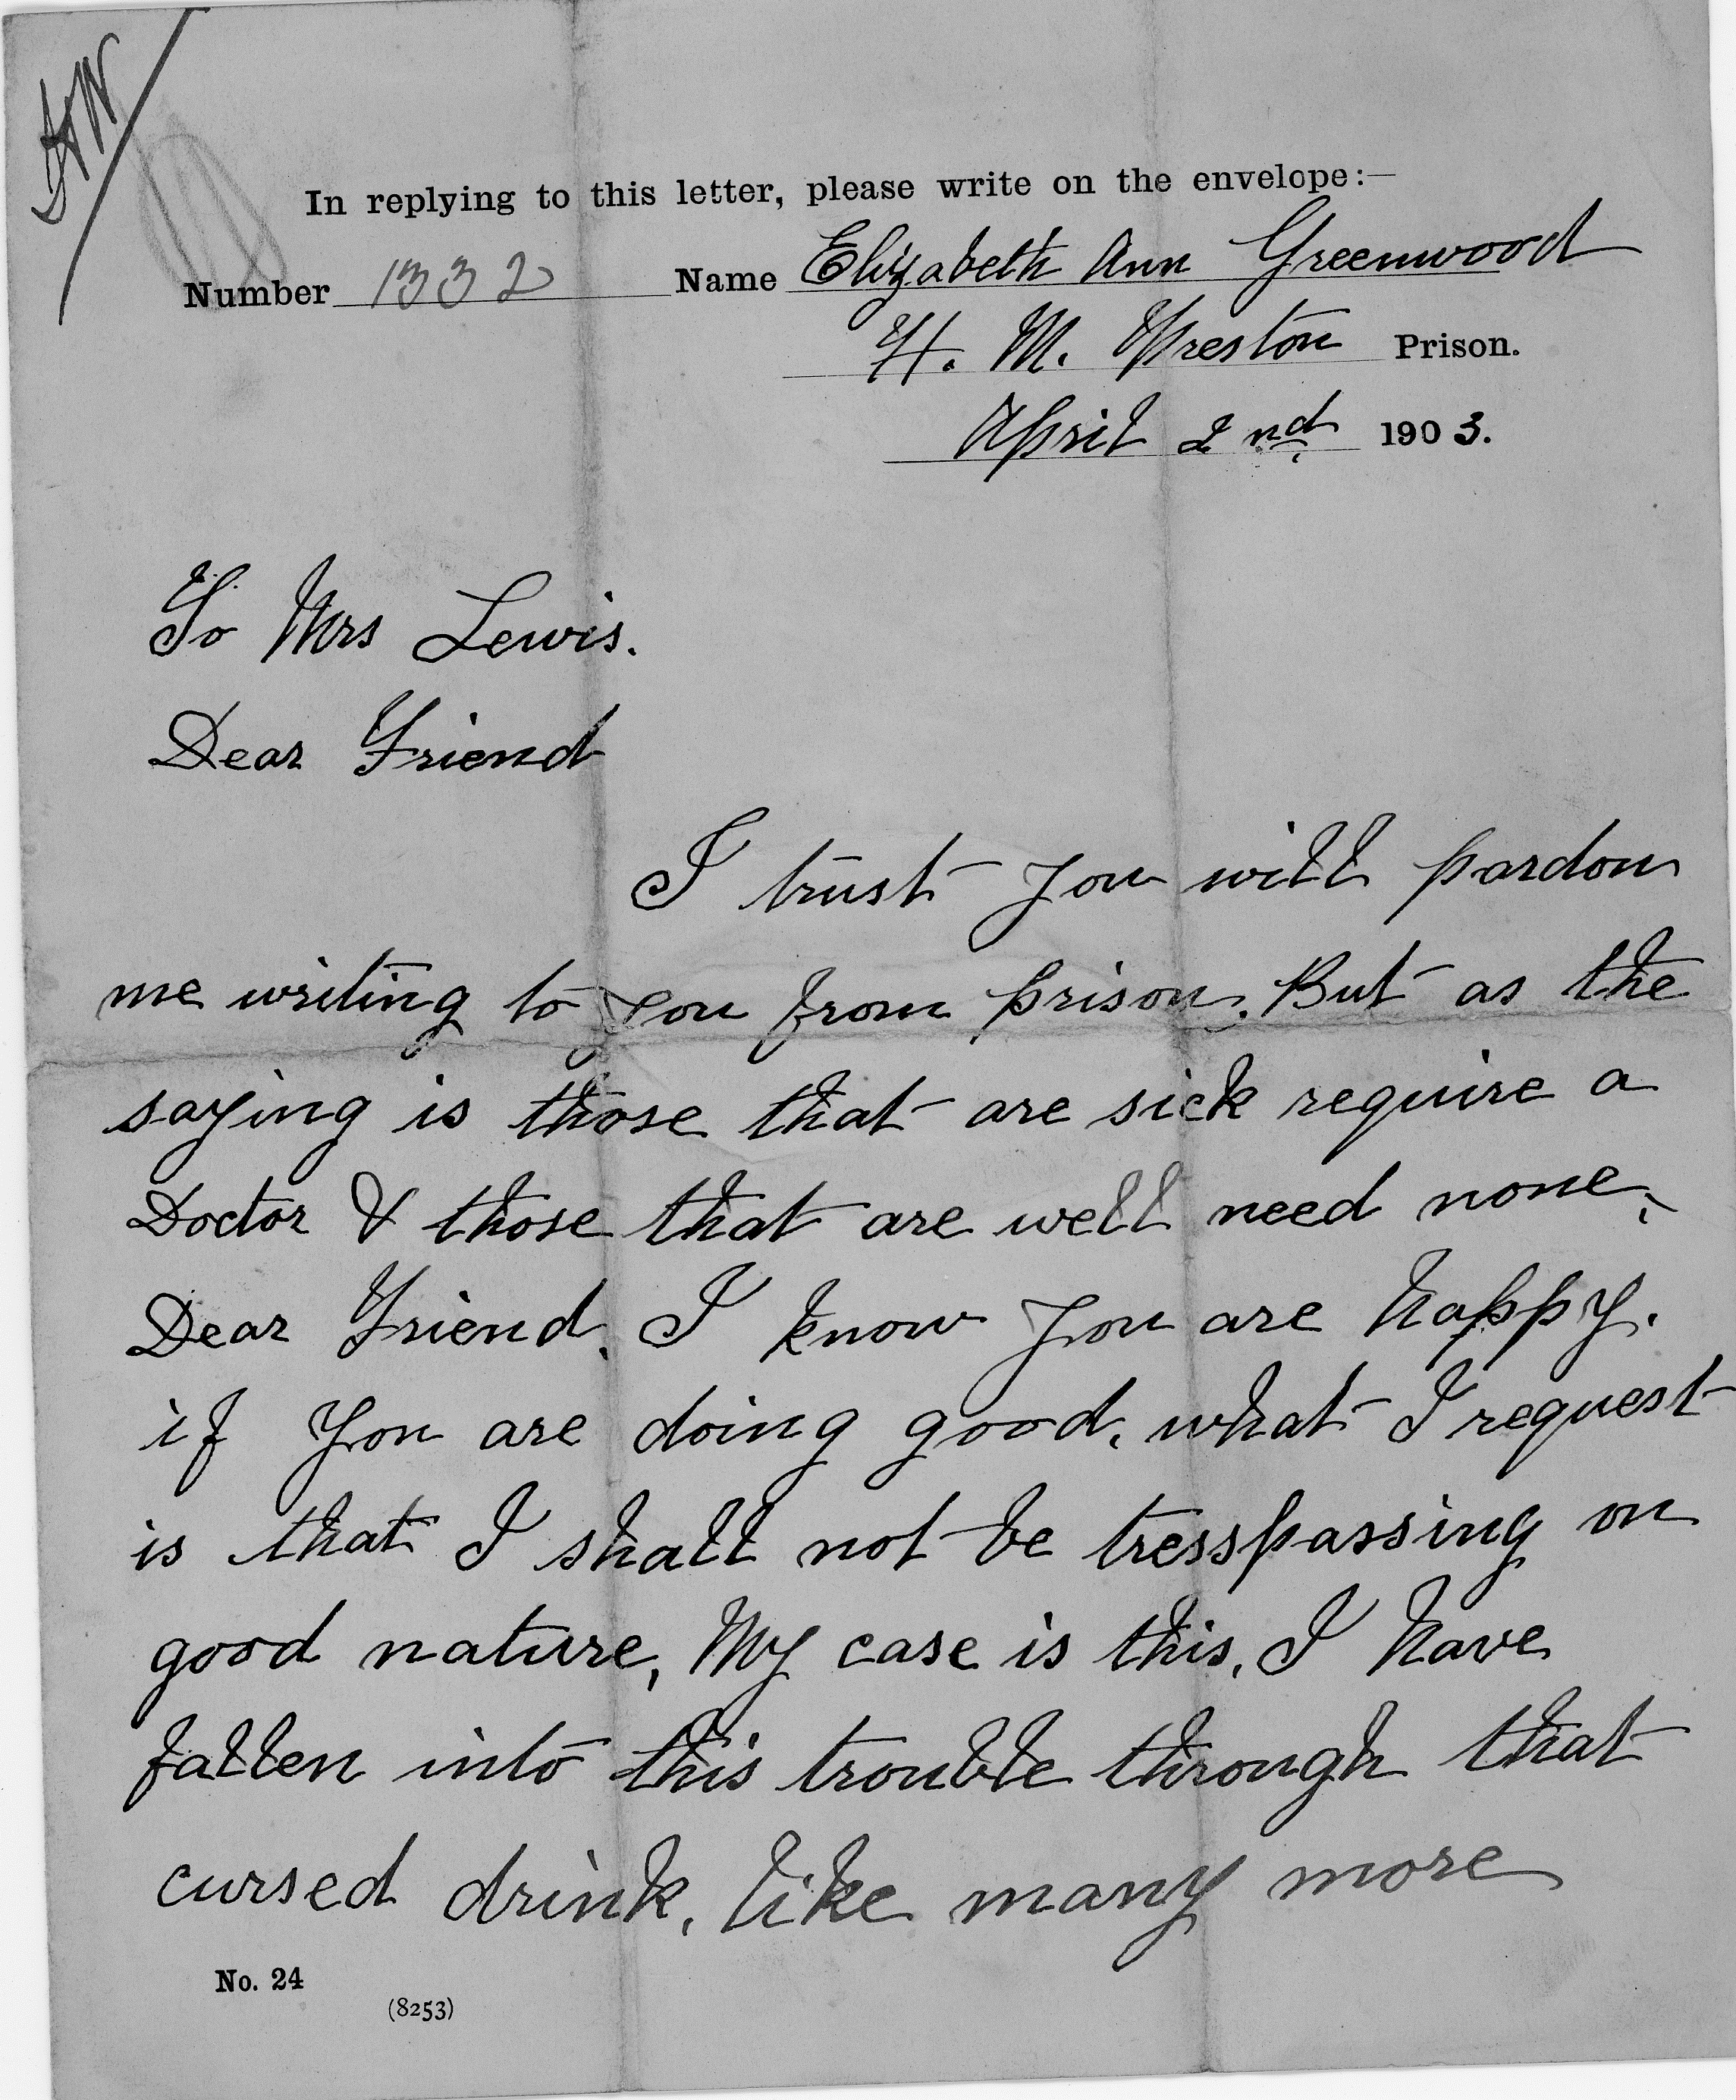 In replying to this letter, please write on the envelope:—
Number 1332 Name Elizabeth Ann Greenwood
H. M. Preston Prison.
April 2nd. 1903.
To Mrs Lewis.
Dear Friend
I trust you will pardon
me writing to you from prison. But as the
saying is those that are sick require a
Doctor & those that are well need none.
Dear Friend. I know you are happy.
if you are doing good. what I request
is that I shall not be tresspassing on
good nature, My case is this, I have
fallen into this trouble through that
cursed drink, like many more
No. 24
(8253)